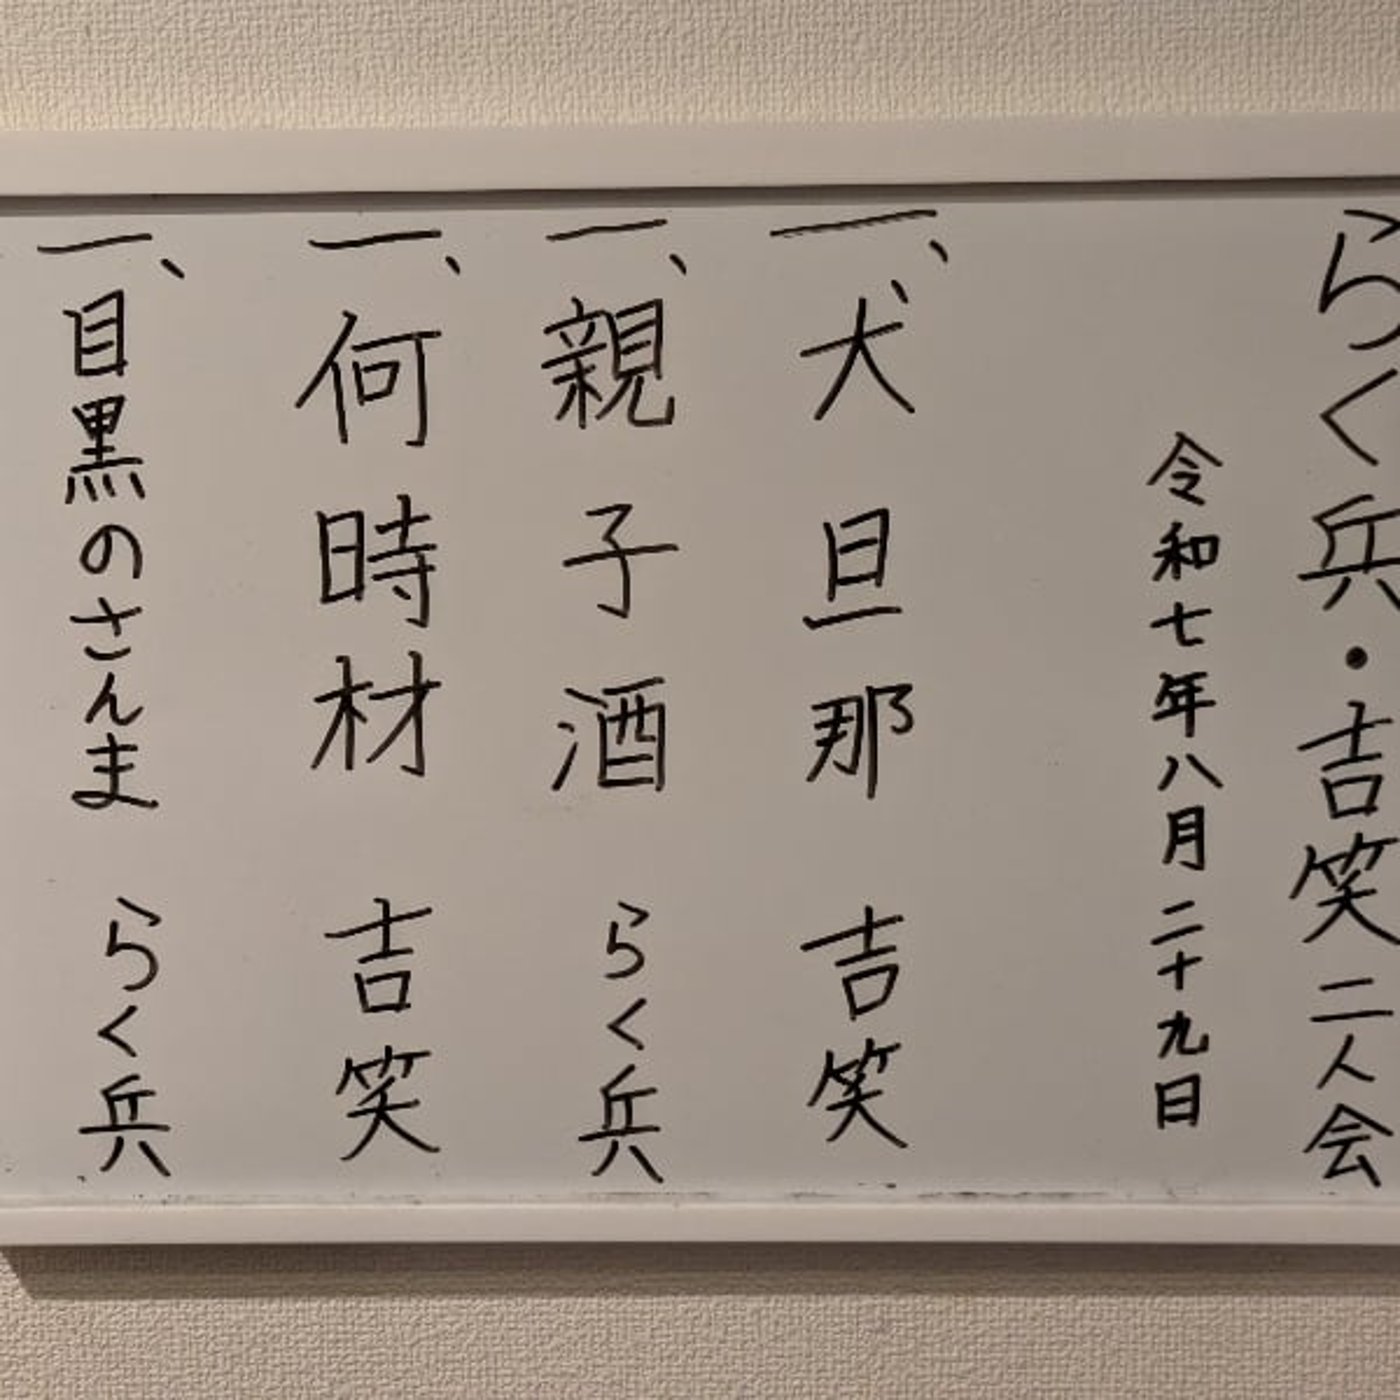 らく兵・吉笑二人会
令和七年八月二十九日
一、犬旦那 吉笑
一、親子酒 らく兵
一、何時材 吉笑
一、目黒のさんま らく兵